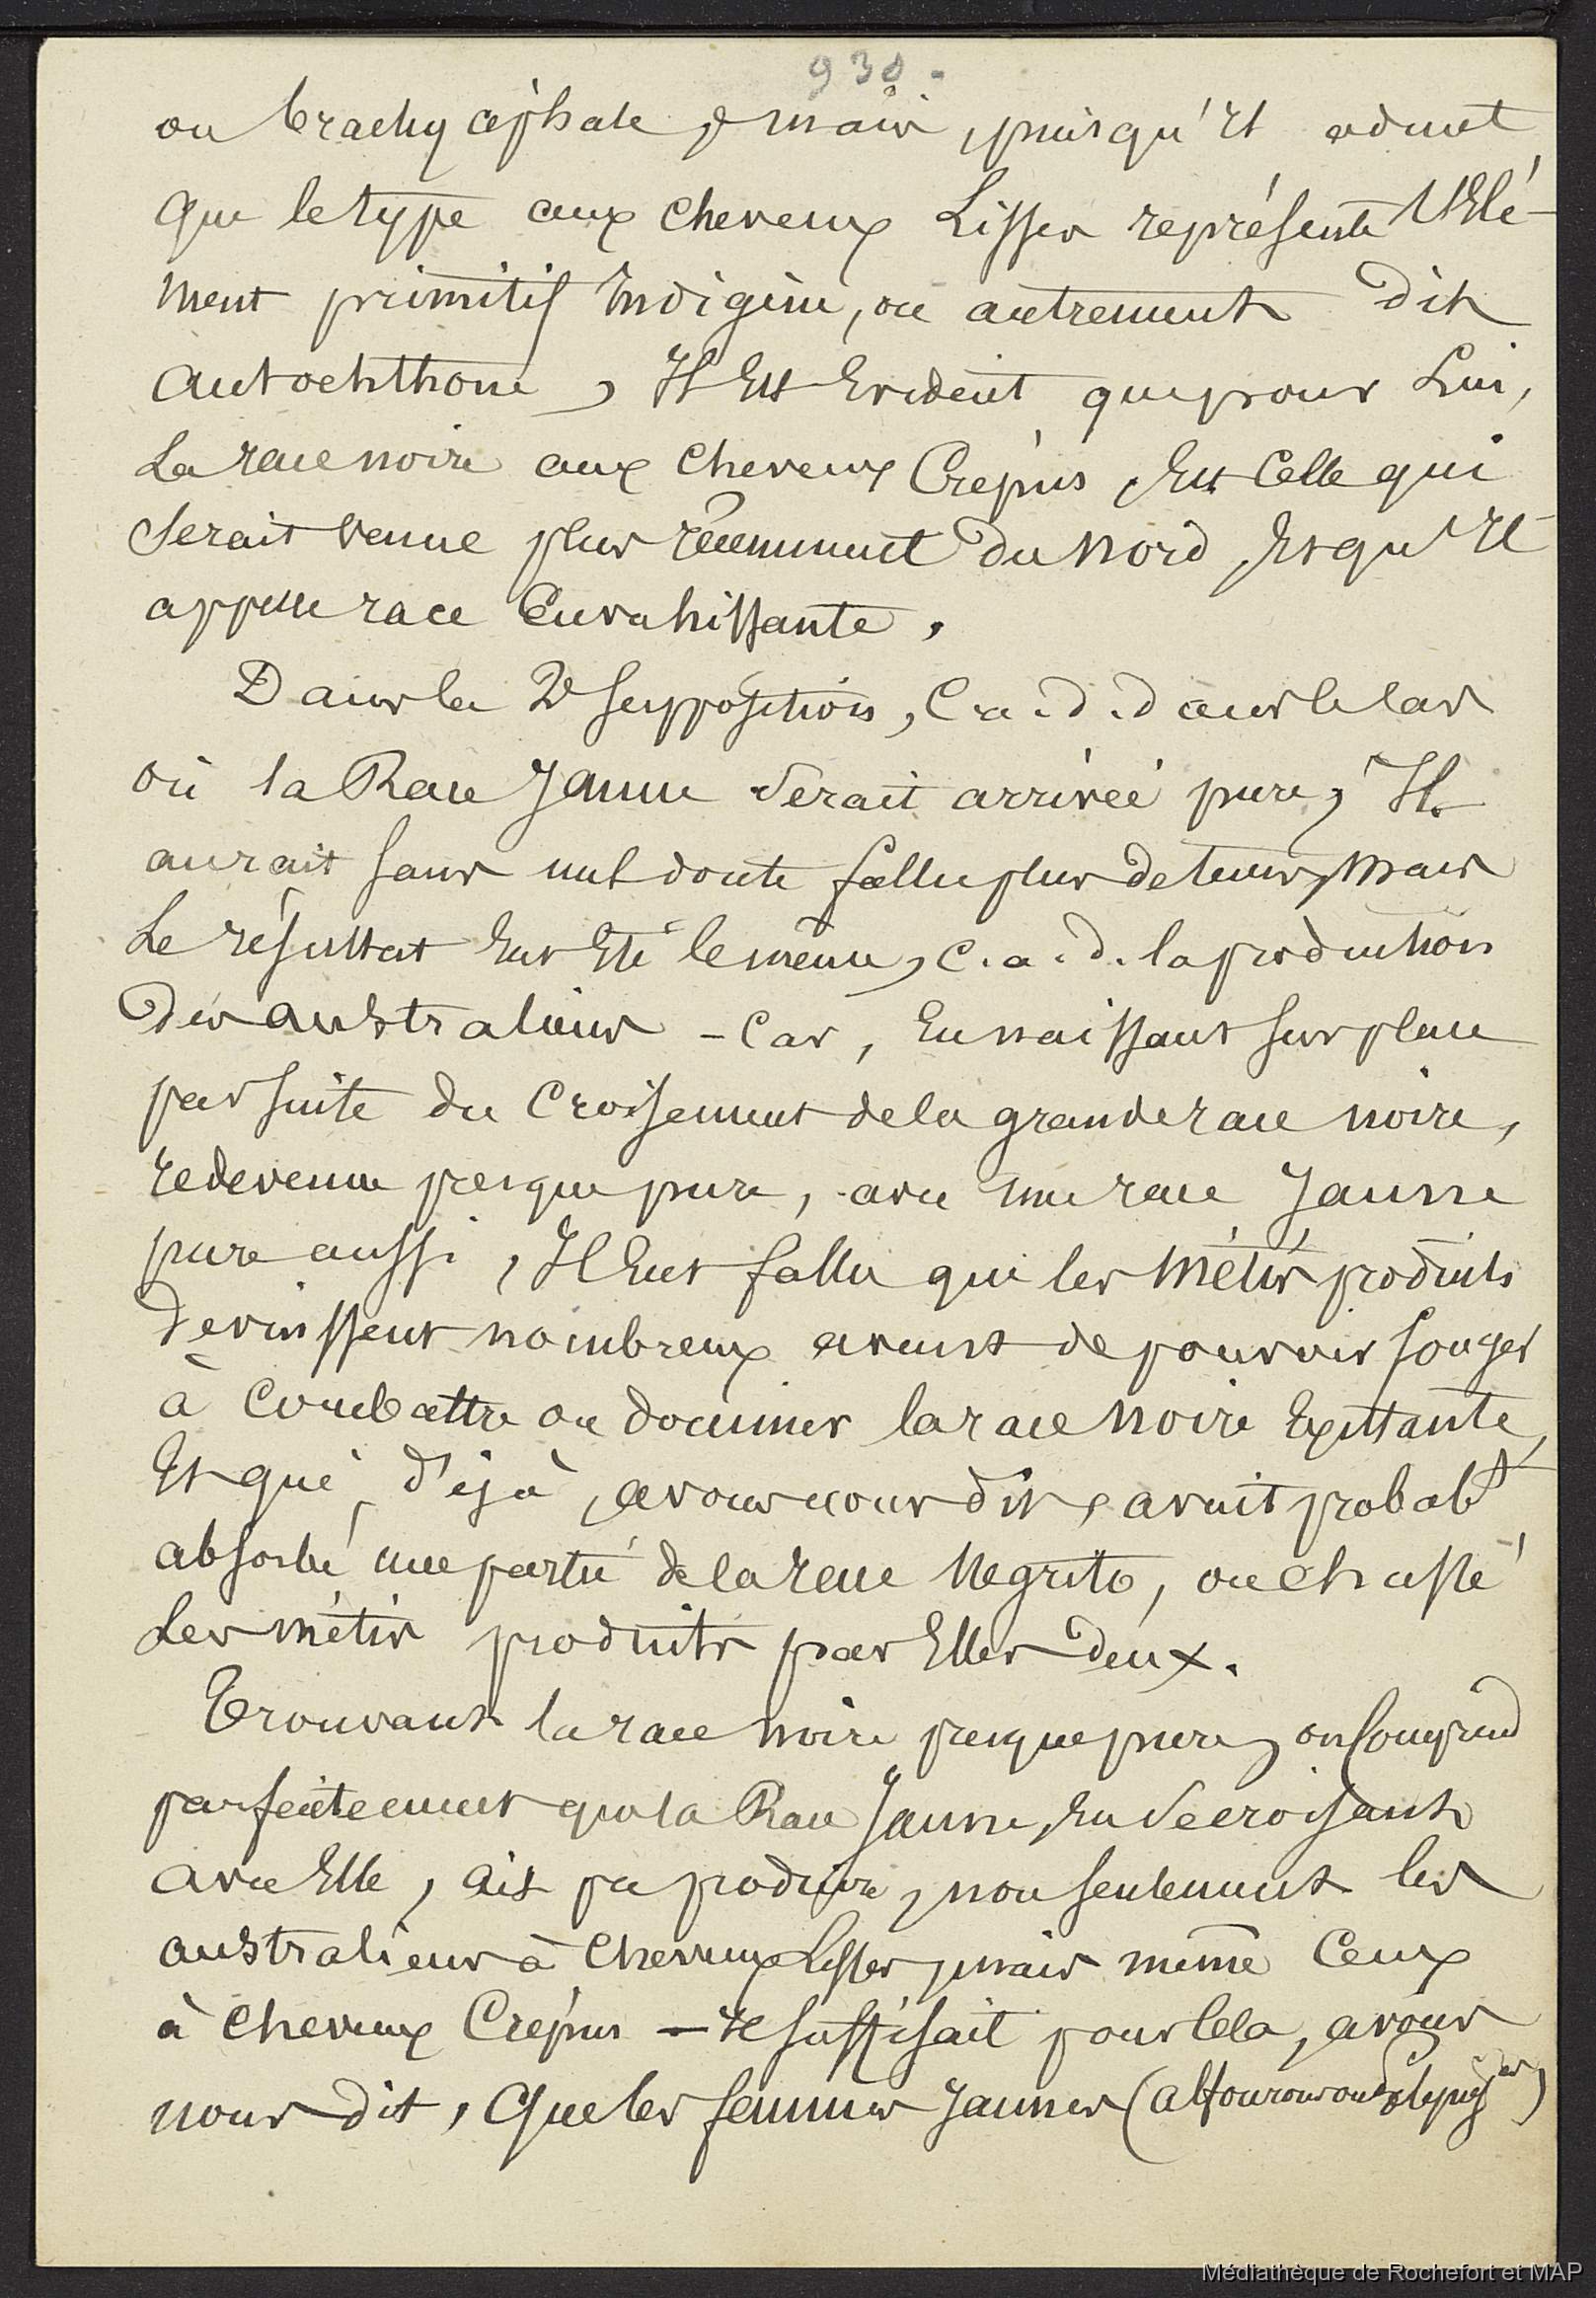 930.
ou brachycéphale, mais, puisqu'Il admet
que le type aux cheveux Lisses représente l'Elé-
ment primitif Indigène, ou autrement dit
autochthone, Il Est Evident que pour Lui,
La race noire aux cheveux Crépus, Est Celle qui
Serait venue plus récemment du nord, Et qu'Il
appelle race Envahissante.
Dans la 2e Supposition, C.a.d. dans le cas
où la Race Jaune Serait arrivée pure, Il
aurait Sans nul doute fallu plus de tems, mais
Le résultat Eut Eté le même, c.a.d. la production
des australiens - Car, En naissant Sur place
par Suite du Croisement de la grande race noire,
redevenue presque pure, avec une race Jaune
pure aussi, Il Eut fallu que les Métis produits
devinssent nombreux avant de pouvoir Songer
à Combattre ou dominer la race noire Existante,
Et qui, déjà, avons nous dit, avait probablt
absorbé une partie de la race Negrito, ou chassé
Les métis produits par Elles deux.
Trouvant la race noire presque pure, on Comprend
parfaitement que la Race Jaune, En Se croisant
avec Elle, ait pu produire, non Seulement les
australiens à Cheveux Lisses, mais même Ceux
à cheveux Crépus — Il Suffisait pour Cela, avons
nous dit, Que les femmes Jaunes (alfourous ou
Médiathèque de Rochefort et MAP